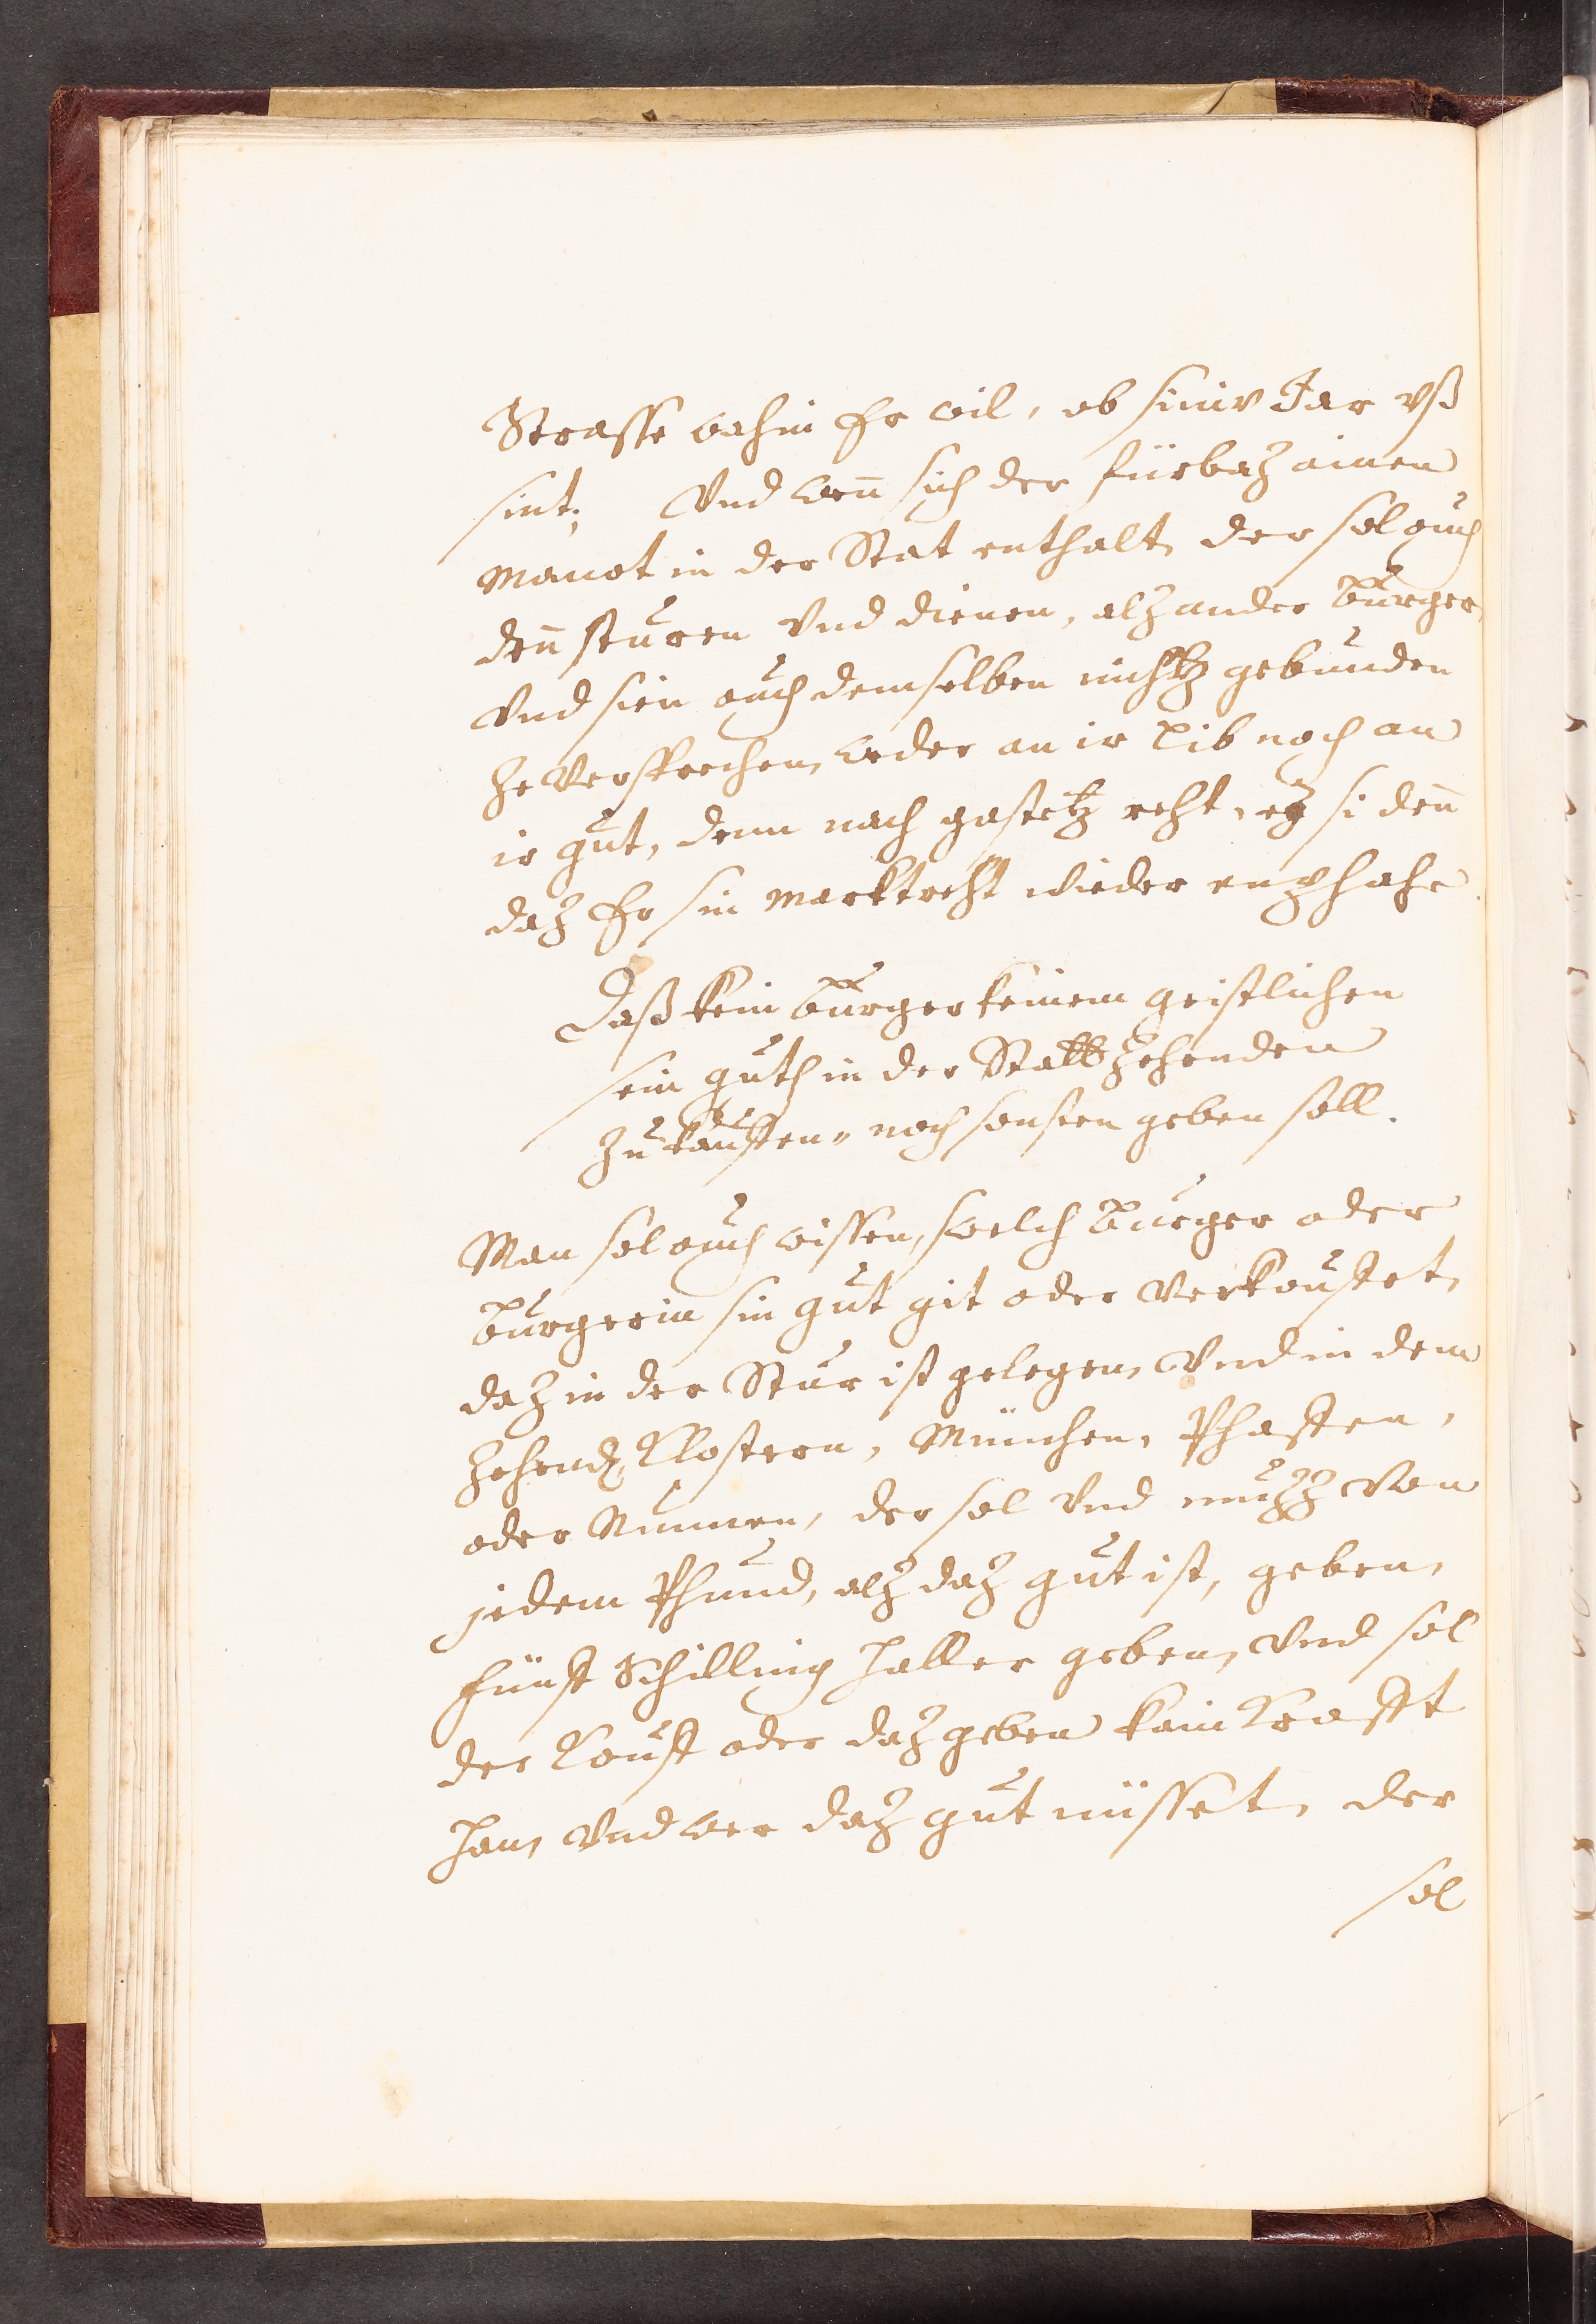 Strasse wahin Er wil, ob siniv Jar vß
sint; Vnd wen̄ sich der fürbaz ainen
Manot in der Stat enthalt, der sol ouch
den̄ sturen Vnd dienen, alz ander Burger,
Vnd sien ouch demselben nichtz gebunden
ze Versprechen, weder an ir Lib noch an
ir gut, denn nach gastetz reht, ez si den̄
daz Er sin Marktreht wieder enphahe.
Daß kein Burger keinem geistlichen
sein guth in der Statt Zehenden
zu kauffen, noch sonsten geben soll.
Man sol ouch wissen, swelch Burger oder
Burgerin sin gut git oder Verkouffet,
daz in der Stur ist gelegen, Vnd in dem
Zehend, Clostern, München, Phaffen,
oder Nunnen, der sol Vnd muzz Von
jedem Phund, alz daz gut ist, geben,
fünff Schilling Haller geben, Vnd sol
der Kouff oder daz geben kain Krafft
Han, Vnd wer daz gut nüsset, der
sol